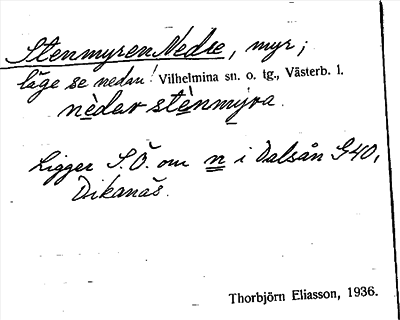 Stenmyren Nedre, myr;
läge se nedan! Vilhelmina sn. o. tg., Västerb. l.
nedar stènmyra.
Ligger S.Ö. om n i Dalsån G40,
Dikanäs.
Thorbjörn Eliasson, 1936.